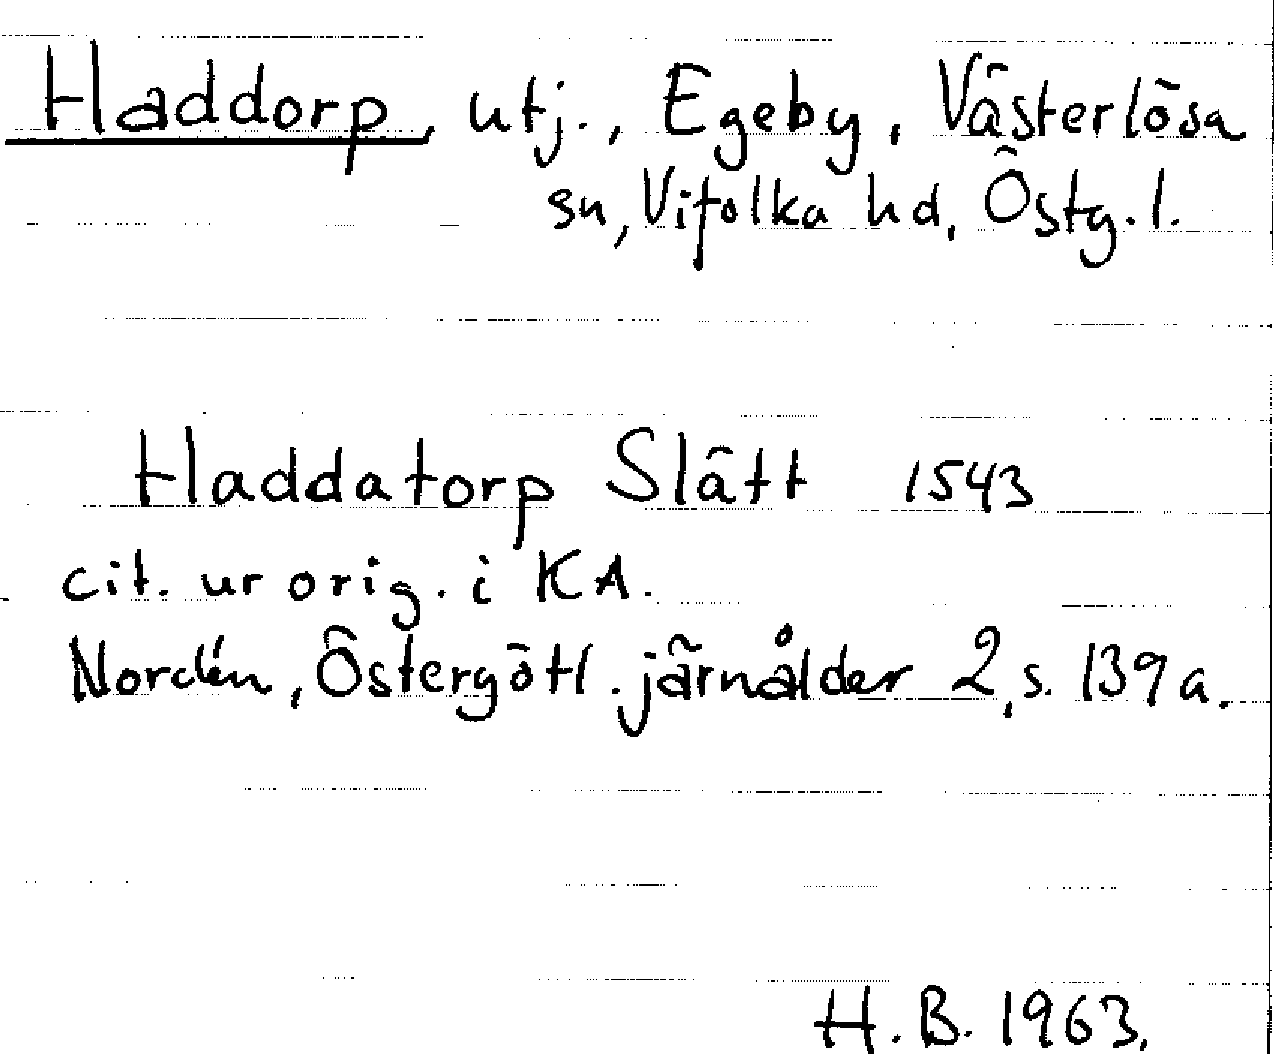 Haddorp, utj., Egeby, Västerlösa
sn, Vifolka hd, Östg.l.
Haddatorp Slätt 1543
cit. ur orig. i KA.
Nordén, Östergötl. järnålder 2, s. 139 a.
H. B. 1963.